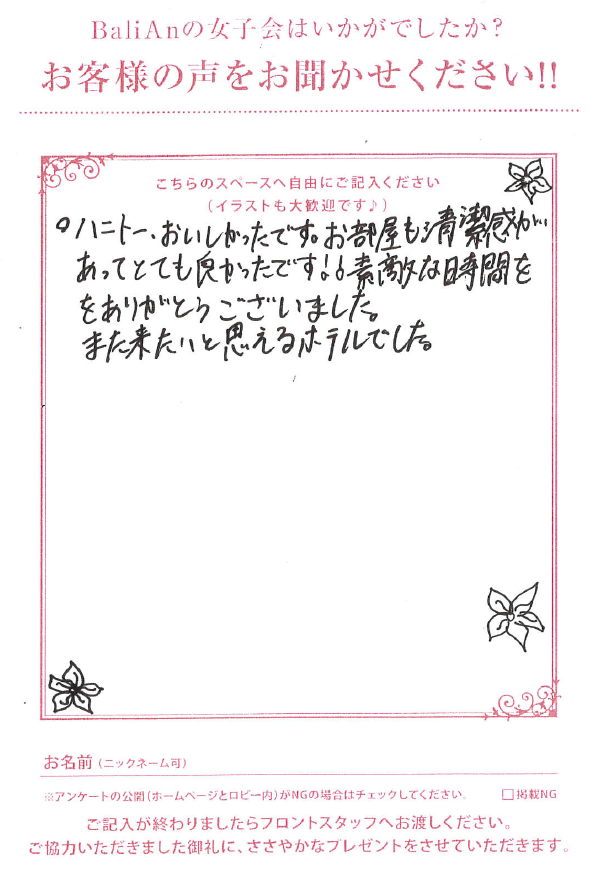 BaliAnの女子会はいかがでしたか？
お客様の声をお聞かせください!!
こちらのスペースへ自由にご記入ください
（イラストも大歓迎です♪）
ハニトー、おいしかったです。お部屋も清潔感が
あってとても良かったです!!素敵な時間を
をありがとうございました。
また来たいと思えるホテルでした。
お名前（ニックネーム可）
※アンケートの公開（ホームページとロビー内）がNGの場合はチェックしてください。 □掲載NG
ご記入が終わりましたらフロントスタッフへお渡しください。
ご協力いただきました御礼に、ささやかなプレゼントをさせていただきます。